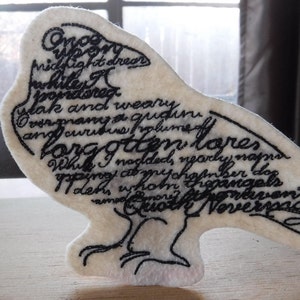 Once
upon
midnight drear
while I
pondered
weak and weary
Over many a quaint
and curious volume of
forgotten lores
While I nodded, nearly napp
pping at my chamber do
dens whom the angels
Quoth the Raven
Nevermore